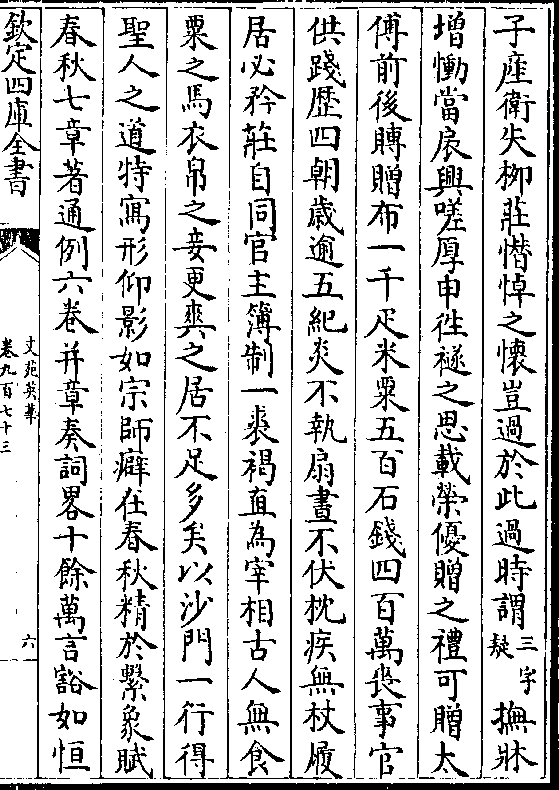 子産衛失柳莊憯悼之懷豈過於此過時謂三字疑撫牀
增慟當扆興嗟厚申徃禭之恩載榮優贈之禮可贈太
傅前後賻贈布一千疋米粟五百石錢四百萬喪事官
供踐歴四朝歳逾五紀炎不執扇晝不伏枕疾無杖履
居必矜莊自同官主簿制一裘褐直為宰相古人無食
粟之馬衣帛之妾更爽之居不足多矣以沙門一行得
聖人之道特寫形仰影如宗師癖在春秋精於繫象賦
春秋七章著通例六卷并章奏詞畧十餘萬言豁如恒
欽定四庫全書
文苑英華
卷九百七十三
六